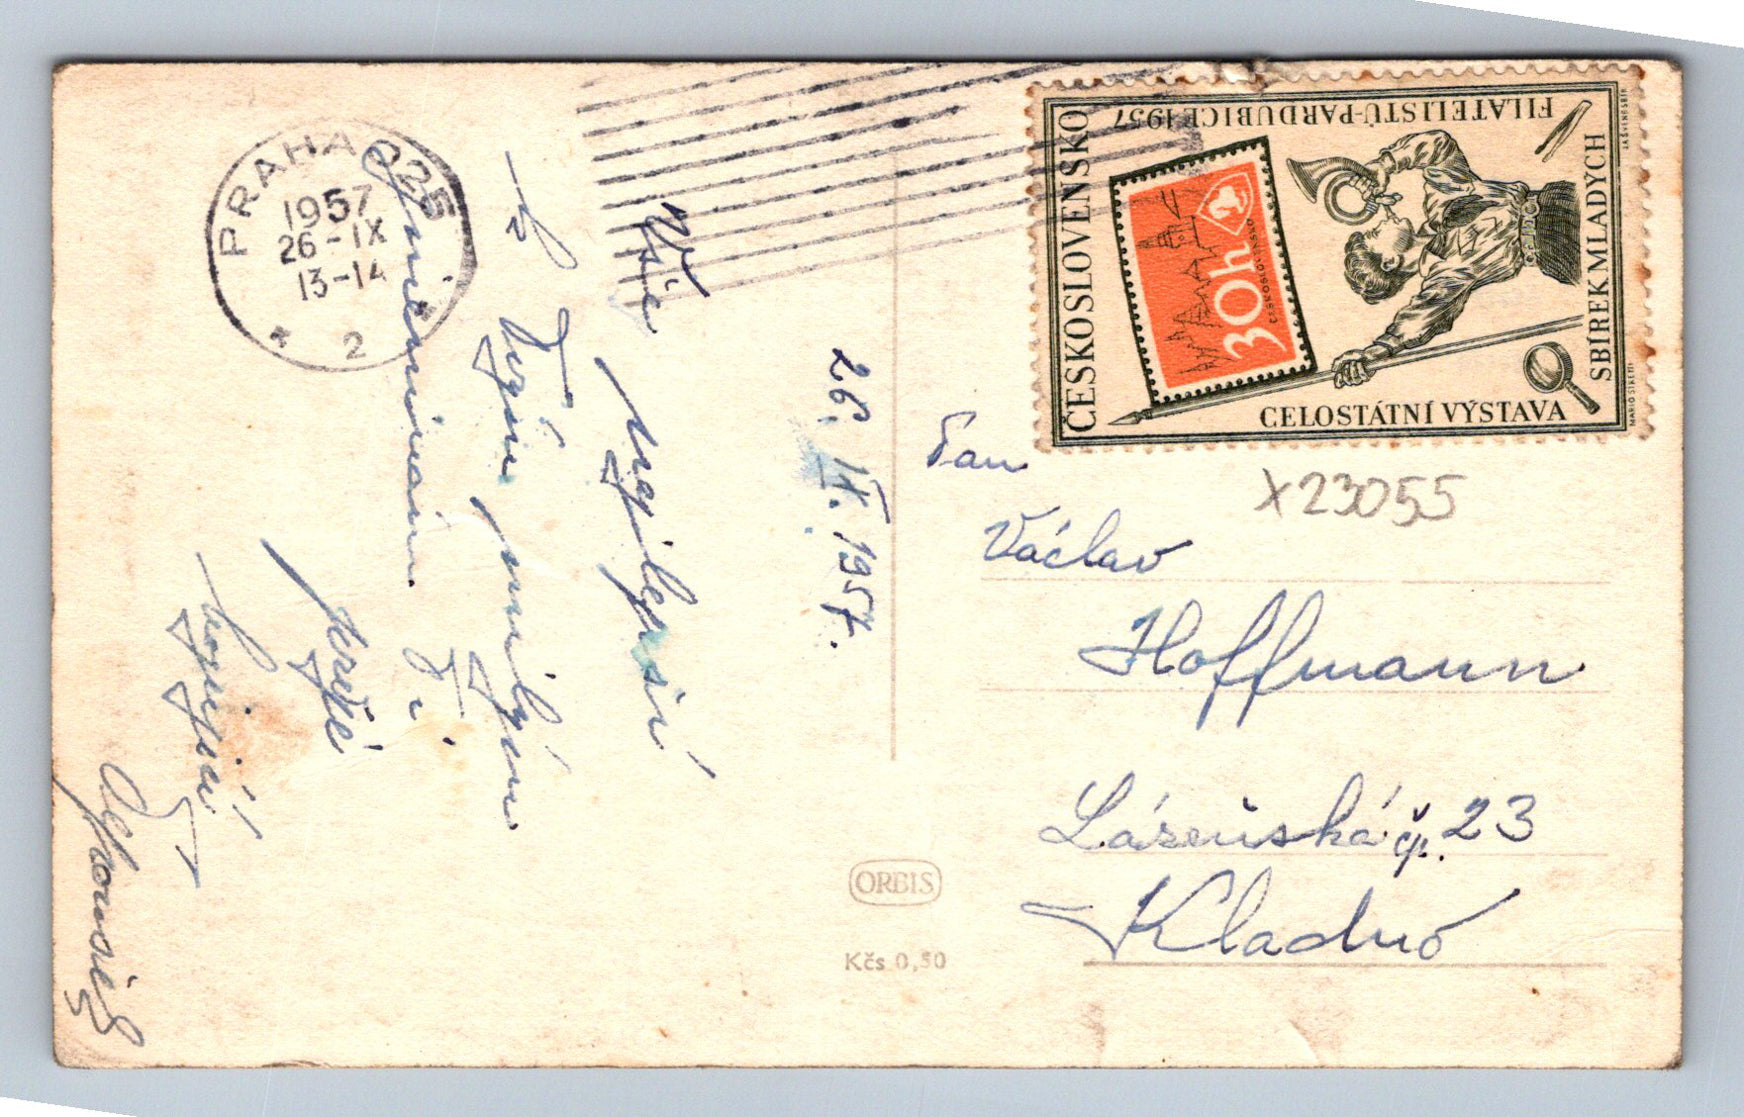 PRAHA 025
1957
26-IX
13-14
* 2 *
26. IX. 1957.
Vše
nejlepší
k Tvým milým
jmeninám Ti
přeje
ČESKOSLOVENSKO
CELOSTÁTNÍ VÝSTAVA
SBÍREK MLADÝCH
FILATELISTŮ-PARDUBICE 1957
30h
ČESKOSLOVENSKO
X23055
Pan
Václav
Hoffmann
Lázeňská čp. 23
Kladno
ORBIS
Kčs 0,50